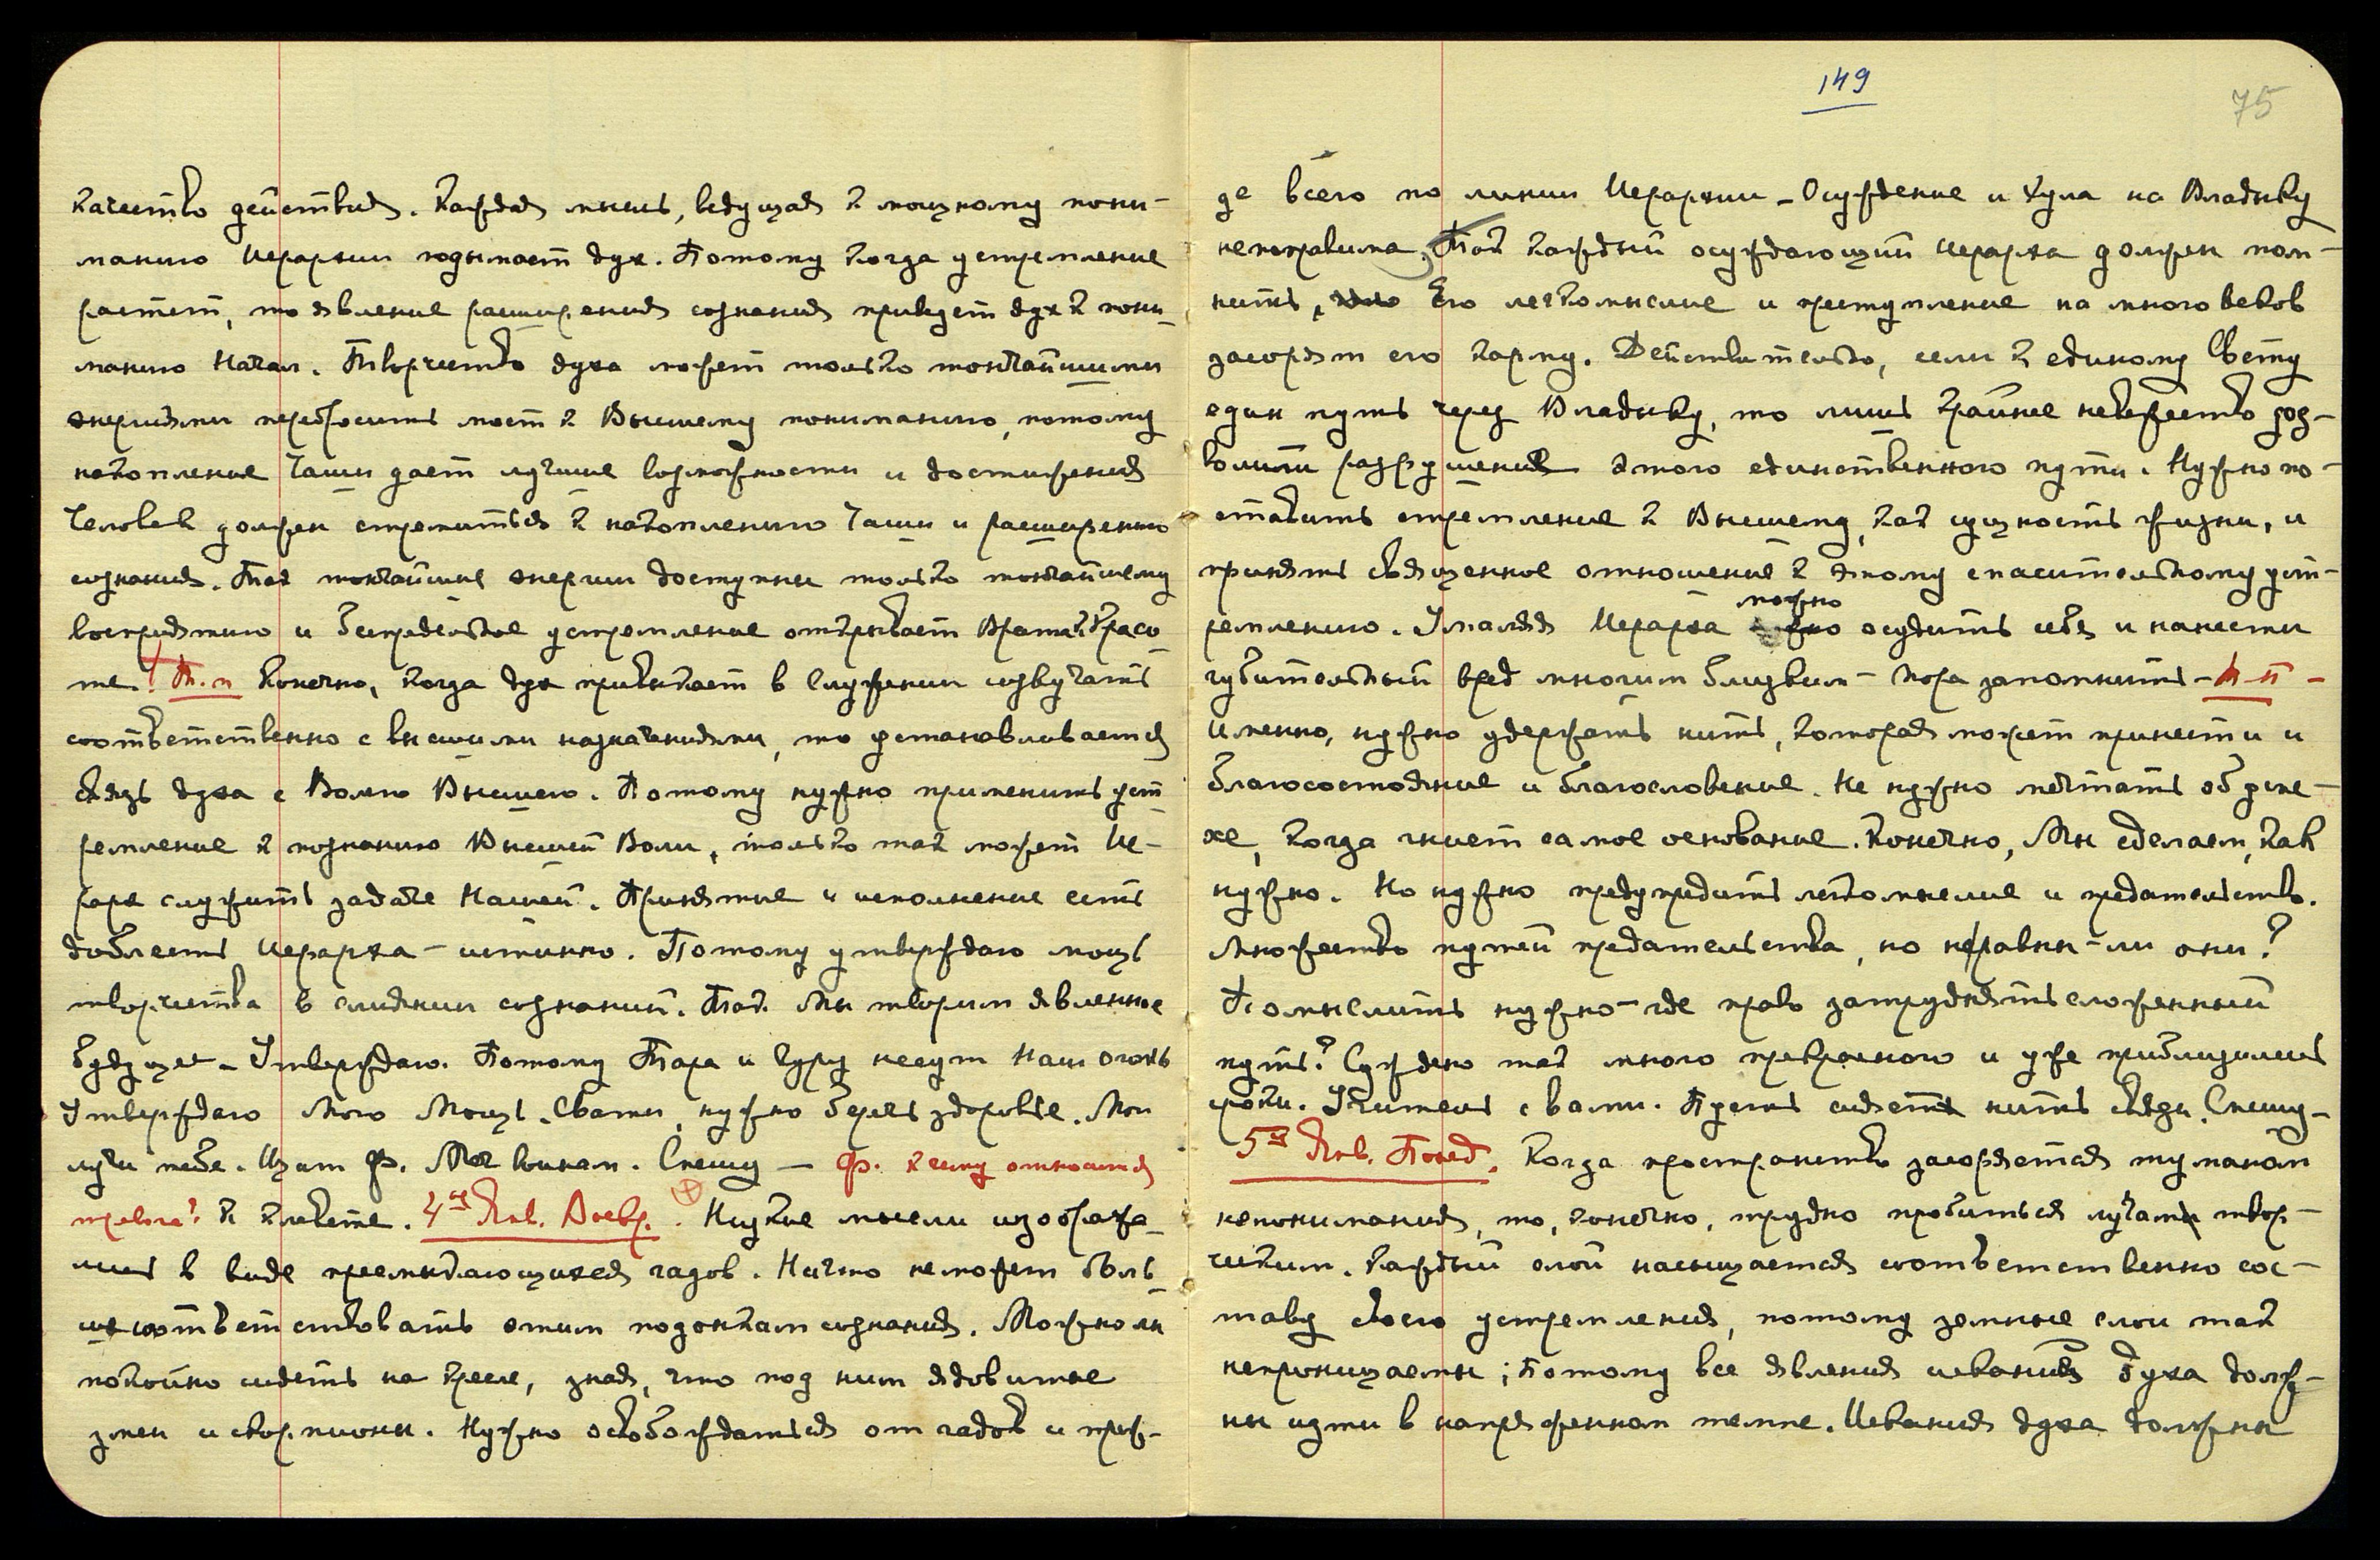 качество действия. Каждая мысль, ведущая к мощному пони-
манию Иерархии подымает дух. Потому когда устремление
растет, то явление расширения сознания приведет дух к пони-
манию Начал. Творчество духа может только тончайшими
энергиями перебросить мост к Высшему пониманию, потому
накопление Чаши дает лучшие возможности и достижения
Человек должен стремиться к накоплению Чаши и расширению
сознания. Так тончайшие энергии доступны только тончайшему
восприятию и беспредельное устремление открывает Врата к Красо-
те. Т. п Конечно, когда дух привыкает в Служении созвучать
соответственно с высшими назначениями, то устанавливается
связь духа с Волею Высшего. Потому нужно применить уст-
ремление к познанию Высшей Воли, только так может Ие-
рарх служить задаче Нашей. Принятие и исполнение есть
доблесть Иерарха – истинно. Потому утверждаю мощь
творчества в слиянии сознаний. Так Мы творим явленное
будущее – Утверждаю. Потому Тара и Гуру несут Наш огонь
Утверждаю Мою Мощь. Свати, нужно беречь здоровье. Мои
лучи тебе. Щит Ф. Меч воинам. Спешу – Ф. к чему относится
тревога? К клевете. 4ое Янв. Воскр. Низкие мысли изобража-
лись в виде пресмыкающихся гадов. Ничто не может боль-
ше соответствовать этим подонкам сознания. Можно ли
покойно сидеть на кресле, зная, что под ним ядовитые
змеи и скорпионы. Нужно освобождаться от гадов и преж-
149
75
де всего по линии Иерархии – Осуждение и хула на Владыку
непоправима. Так каждый осуждающий Иерарха должен пом-
нить, что Его легкомыслие и преступление на много веков
засорят его карму. Действительно, если к единому Свету
един путь через Владыку, то лишь крайнее невежество доз-
волит разрушение этого единственного пути. Нужно по-
ставить стремление к Высшему, как сущность жизни, и
принять священное отношение к этому спасительному уст-
ремлению. Умаляя Иерарха можно осудить себя и нанести
губительный вред многим близким – Пора запомнить – т-п –
Именно, нужно удержать нить, которая может принести и
благосостояние и благословение. Не нужно мечтать об успе-
хе, когда гниет самое основание. Конечно, Мы сделаем, как
нужно. Но нужно предупредить легкомыслие и предательство.
Множество путей предательства, но не равны-ли они?
Помыслить нужно – где право затруднять сложенный
путь? Суждено так много прекрасного и уже приблизились
сроки. Учитель с вами. Пусть сияет нить связи. Спешу –
5ое Янв. Понед. Когда пространство засоряется туманом
непонимания, то, конечно, трудно пробиться лучам твор-
ческим. Каждый слой насыщается соответственно сос-
таву своего устремления, потому земные слои так
непроницаемы; потому все явления исканий духа долж-
ны идти в напряженном темпе. Искания духа должны